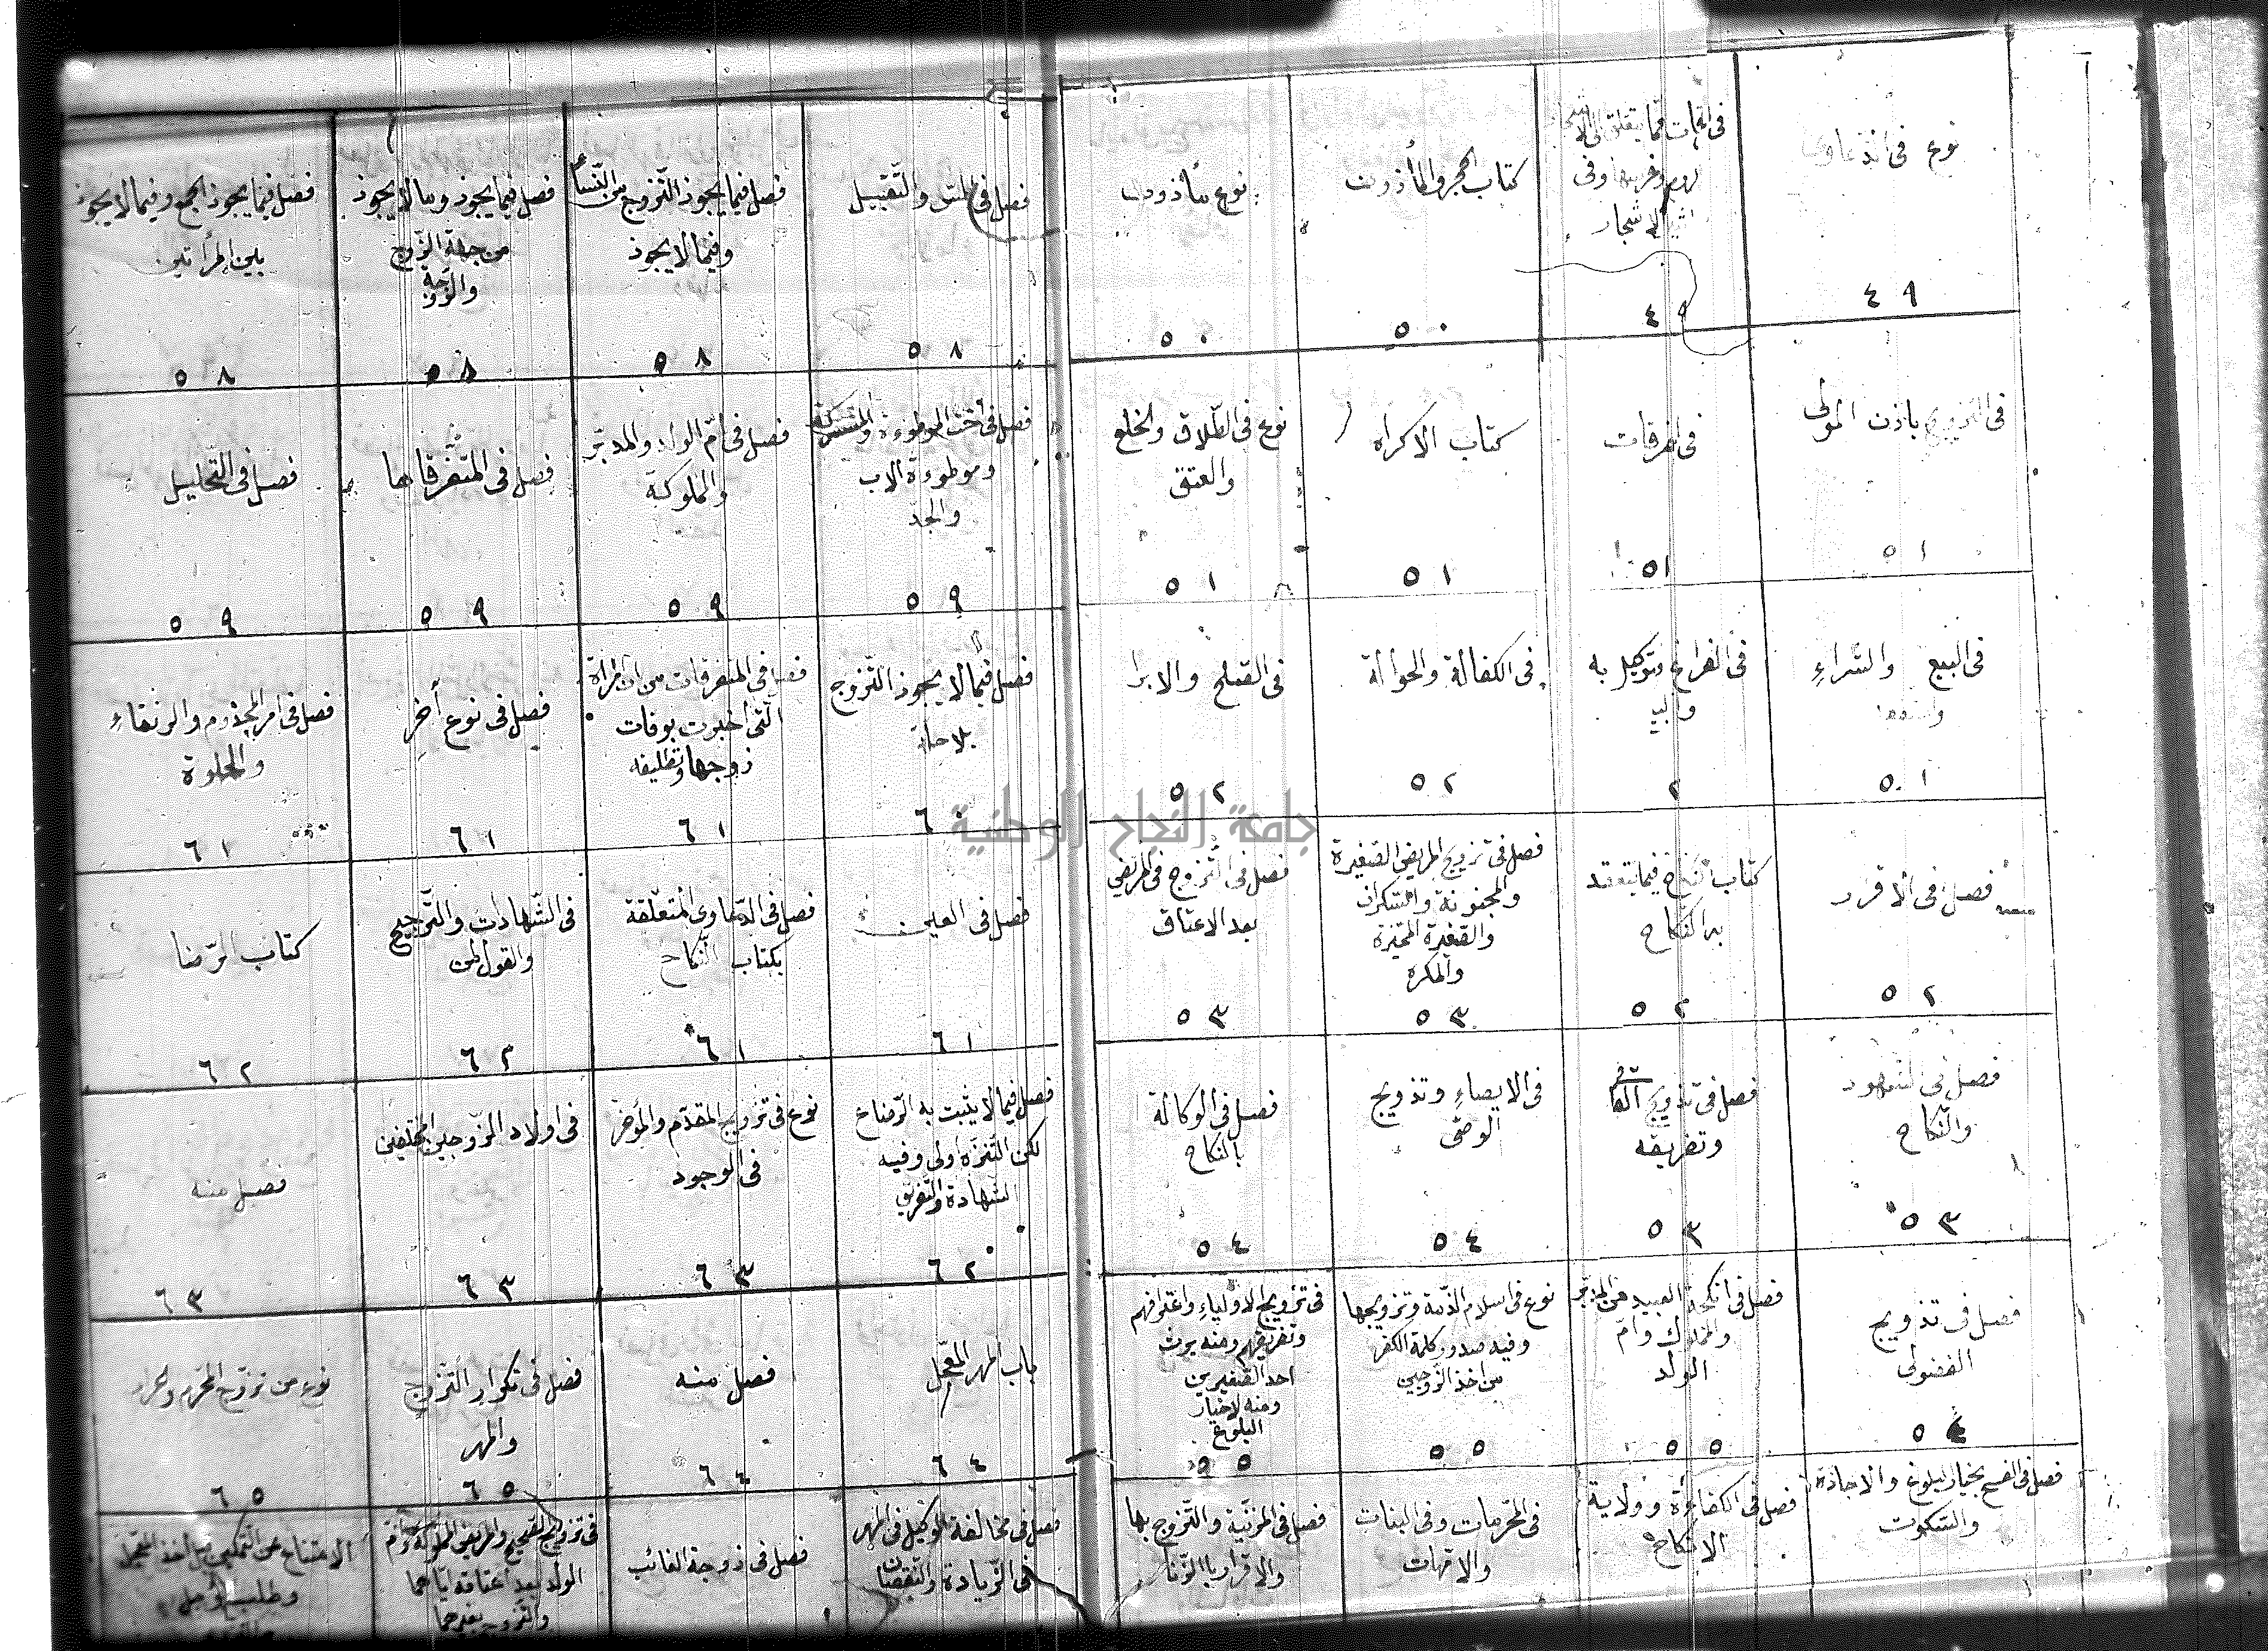 نوع في الدعاوى
٤٩
في اثبات فيما يتعلق
وفي
الاشجار
٤٩
كتاب الحجر والمأذون
٥٠
نوع مأذون
٥٠
في التزويج باذن المولى
٥١
في متفرقات
٥١
كتاب الاكراه
٥١
نوع في الطلاق والخلع
والعتق
٥١
في البيع والشراء
٥١
في الفراغ وتوكيل به
٢
في الكفالة والحوالة
٥٢
في الصلح والابرا
٥٢
فصل في الاقرار
٥٢
كتاب النكاح فيما ينعقد
به النكاح
٥٢
فصل في تزويج المريض الصغيرة
والمجنونة والسكران
والصغيرة المميزة
والمكره
٥٣
فصل في التزوج في المريض
بعد الاعتاق
٥٣
فصل في الشهود
والنكاح
٥٣
فصل في تذويج
وتفريقه
٥٣
في الايصاء وتذويج
الوصى
٥٤
فصل في الوكالة
بالنكاح
٥٤
فصل في تذويج
الفضولى
٥٤
فصل في انكحة العبيد من المدبر
والمملوك وام
الولد
٥٥
نوع في اسلام الذمية وتزويجها
وفيه صدور كلمة الكفر
من احد الزوجين
٥٥
في تزويج الاولياء واعترافهم
وتفريقهم ومنه يرث
احد الصغيرين
ومنه لاخيار
البلوغ
٥٥
فصل في الفسخ بخيار البلوغ والاجازة
والسكوت
فصل في الكفاءة وولاية
الانكاح
في المحرمات وفي البنات
والامهات
فصل في المزنية والتزوج بها
والاقرار بالزنا
فصل في المس والتقبيل
٥٨
فصل فيما يجوذ التزوج من النساء
وفيما لا يجوذ
٥٨
فصل فيما يجوذ وما لا يجوذ
من جهة الزوج
والزوجة
٥٨
فصل فيما يجوذ الجمع وفيما لا يجوذ
بين المرأتين
٥٨
فصل في اخت الموطوءة والمشتركة
وموطوءة الاب
والجد
٥٩
فصل في ام الولد والمدبر
والمملوكة
٥٩
فصل في المتفرقاتها
٥٩
فصل في التحليل
٥٩
فصل فيما لا يجوذ التزوج
بلا حلة
٦٠
فصل في المتفرقات من المرأة
التى اخبرت بوفات
زوجها وتطليقه
٦١
فصل في نوع آخر
٦١
فصل في امر المجذوم والرتقاء
والخلوة
٦١
فصل في العين
٦١
فصل في الدعاوى المتعلقة
بكتاب النكاح
٦١
في الشهادات والترجيح
والقول لمن
٦٢
كتاب الرضا
٦٢
فصل فيما لا يثبت به الرضاع
لكن التنزه اولى وفيه
الشهادة والتفريق
٦٢
نوع في تزويج المقدم والمؤخر
في الوجود
٦٣
في اولاد الزوجين المختلفين
٦٣
فصل منه
٦٣
باب المهر المعجل
٦٤
فصل منه
٦٤
فصل في تكرار التزوج
والمهر
٦٥
نوع من تزوج المحرم
٦٥
فصل في مخالفة الوكيل في المهر
في الزيادة والنقصان
فصل في ذوجة الغائب
في تزويج الصحيح والمريض المملوكة وام
الولد بعد اعتاقه اياهما
والتزوج بعدهما
الامتناع عن التمكين من اخذ المعجل
وطلب
جامعة النجاح الوطنية